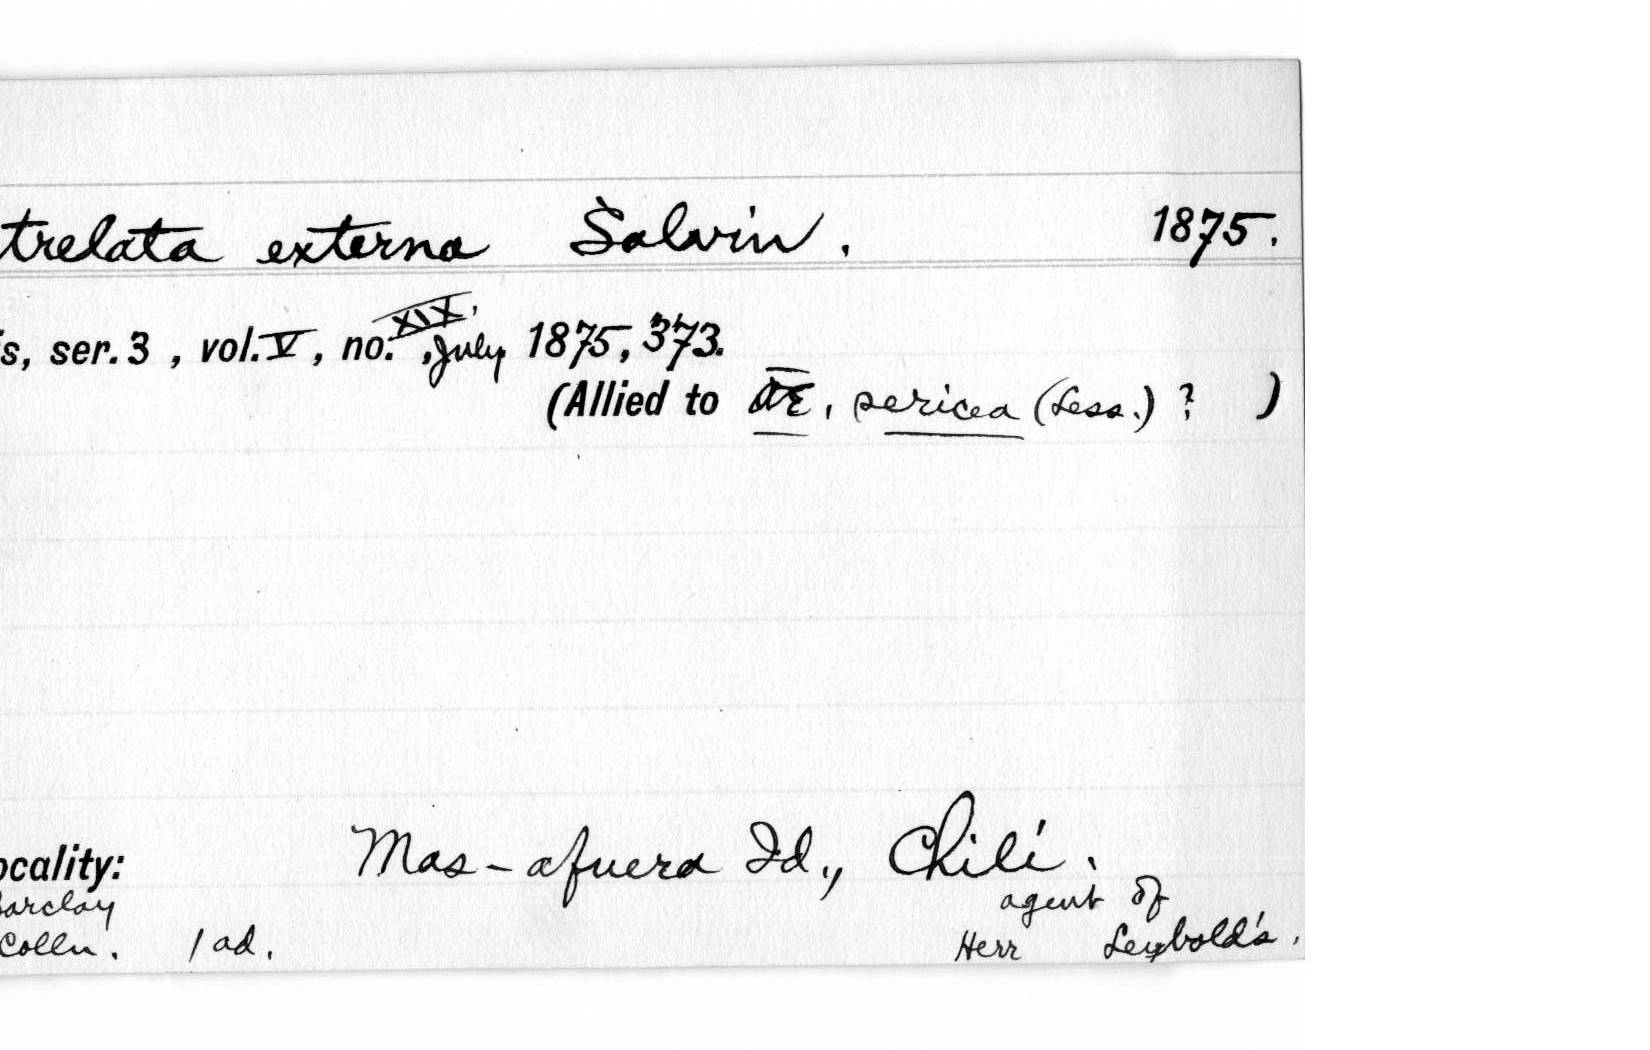 trelata externa Salvin. 1875.
s, ser. 3, vol. V, no. XIX, July 1875, 373.
(Allied to Æ. sericea (Less.) ? )
ocality: Mas-afuera Id., Chili.
Barclay agent of
Colln. 1 ad. Herr Leybold's.